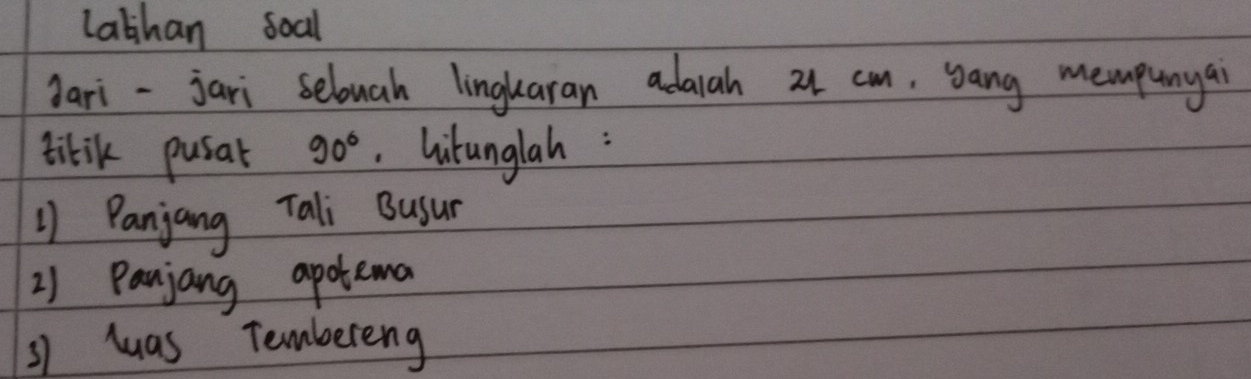 Latihan soal
Jari - jari sebuah lingkaran adalah 21 cm. yang mempunyai
titik pusat 90°. hitunglah :
1) Panjang Tali Busur
2) Panjang apotema
3) luas Tembereng